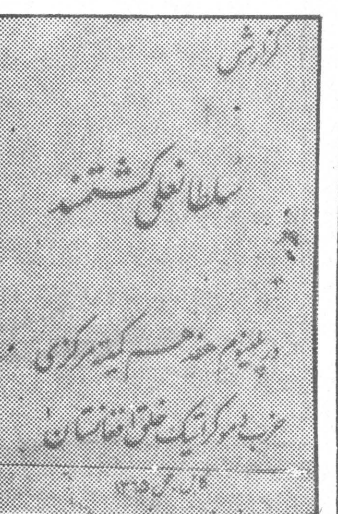 گزارش
سلطانعلی کشتمند
در پلینوم هفدهم کمیته مرکزی
حزب دموکراتیک خلق افغانستان
کابل، ۱۳۶۵